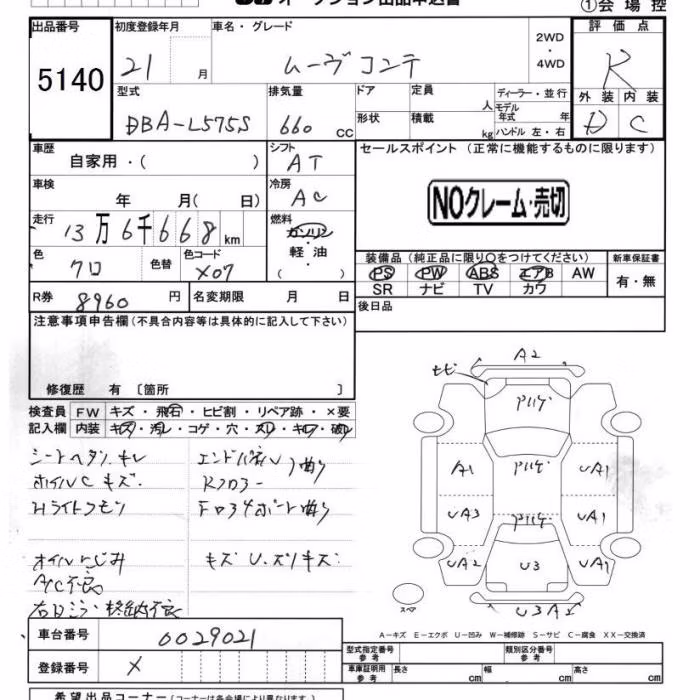 オークション出品申込書
①会場控
出品番号 初度登録年月 車名・グレード 2WD・4WD 評価点
5140 21 月 ムーヴコンテ R
型式 排気量 ドア 定員 人 ディーラー・並行 外装 内装
DBA-L575S 660 CC 形状 積載 kg モデル年式 年 ハンドル 左・右 D C
車歴 自家用・( ) シフト AT セールスポイント (正常に機能するものに限ります)
車検 年 月( 日) 冷房 AC
NOクレーム・売切
走行 13万6千668km 燃料 ガソリン・軽油・( )
色 クロ 色替 色コード X07
装備品 (純正品に限り○をつけてください) 新車保証書
PS PW ABS エアB AW 有・無
SR ナビ TV カワ
R券 8960 円 名変期限 月 日 後日品
注意事項申告欄 (不具合内容等は具体的に記入して下さい)
修復歴 有 [箇所 ]
検査員記入欄 FW キズ・飛石・ヒビ割・リペア跡・×要
内装 キズ・汚レ・コゲ・穴・スレ・キレ・破レ
シートヘタリ、キレ
ホイルC キズ
Hライトクモリ
オイルにじみ
A/C不良
右Dミラー格納不良
エンドパネル 曲り
Rフロアー
キズ U、スリキズ
A2
モヒ
アハゲ
A1 アハゲ UA1
UA3 アハゲ UA1
UA2 U3 UA1
スペア
U3 A2
A-キズ E-エクボ U-凹み W-補修跡 S-サビ C-腐食 XX-交換済
車台番号 0029021
登録番号 X
型式指定番号 参考 類別区分番号 参考
車庫証明用 参考 長さ cm 幅 cm 高さ cm
希望出品コーナー (コーナーは各会場により異なります)